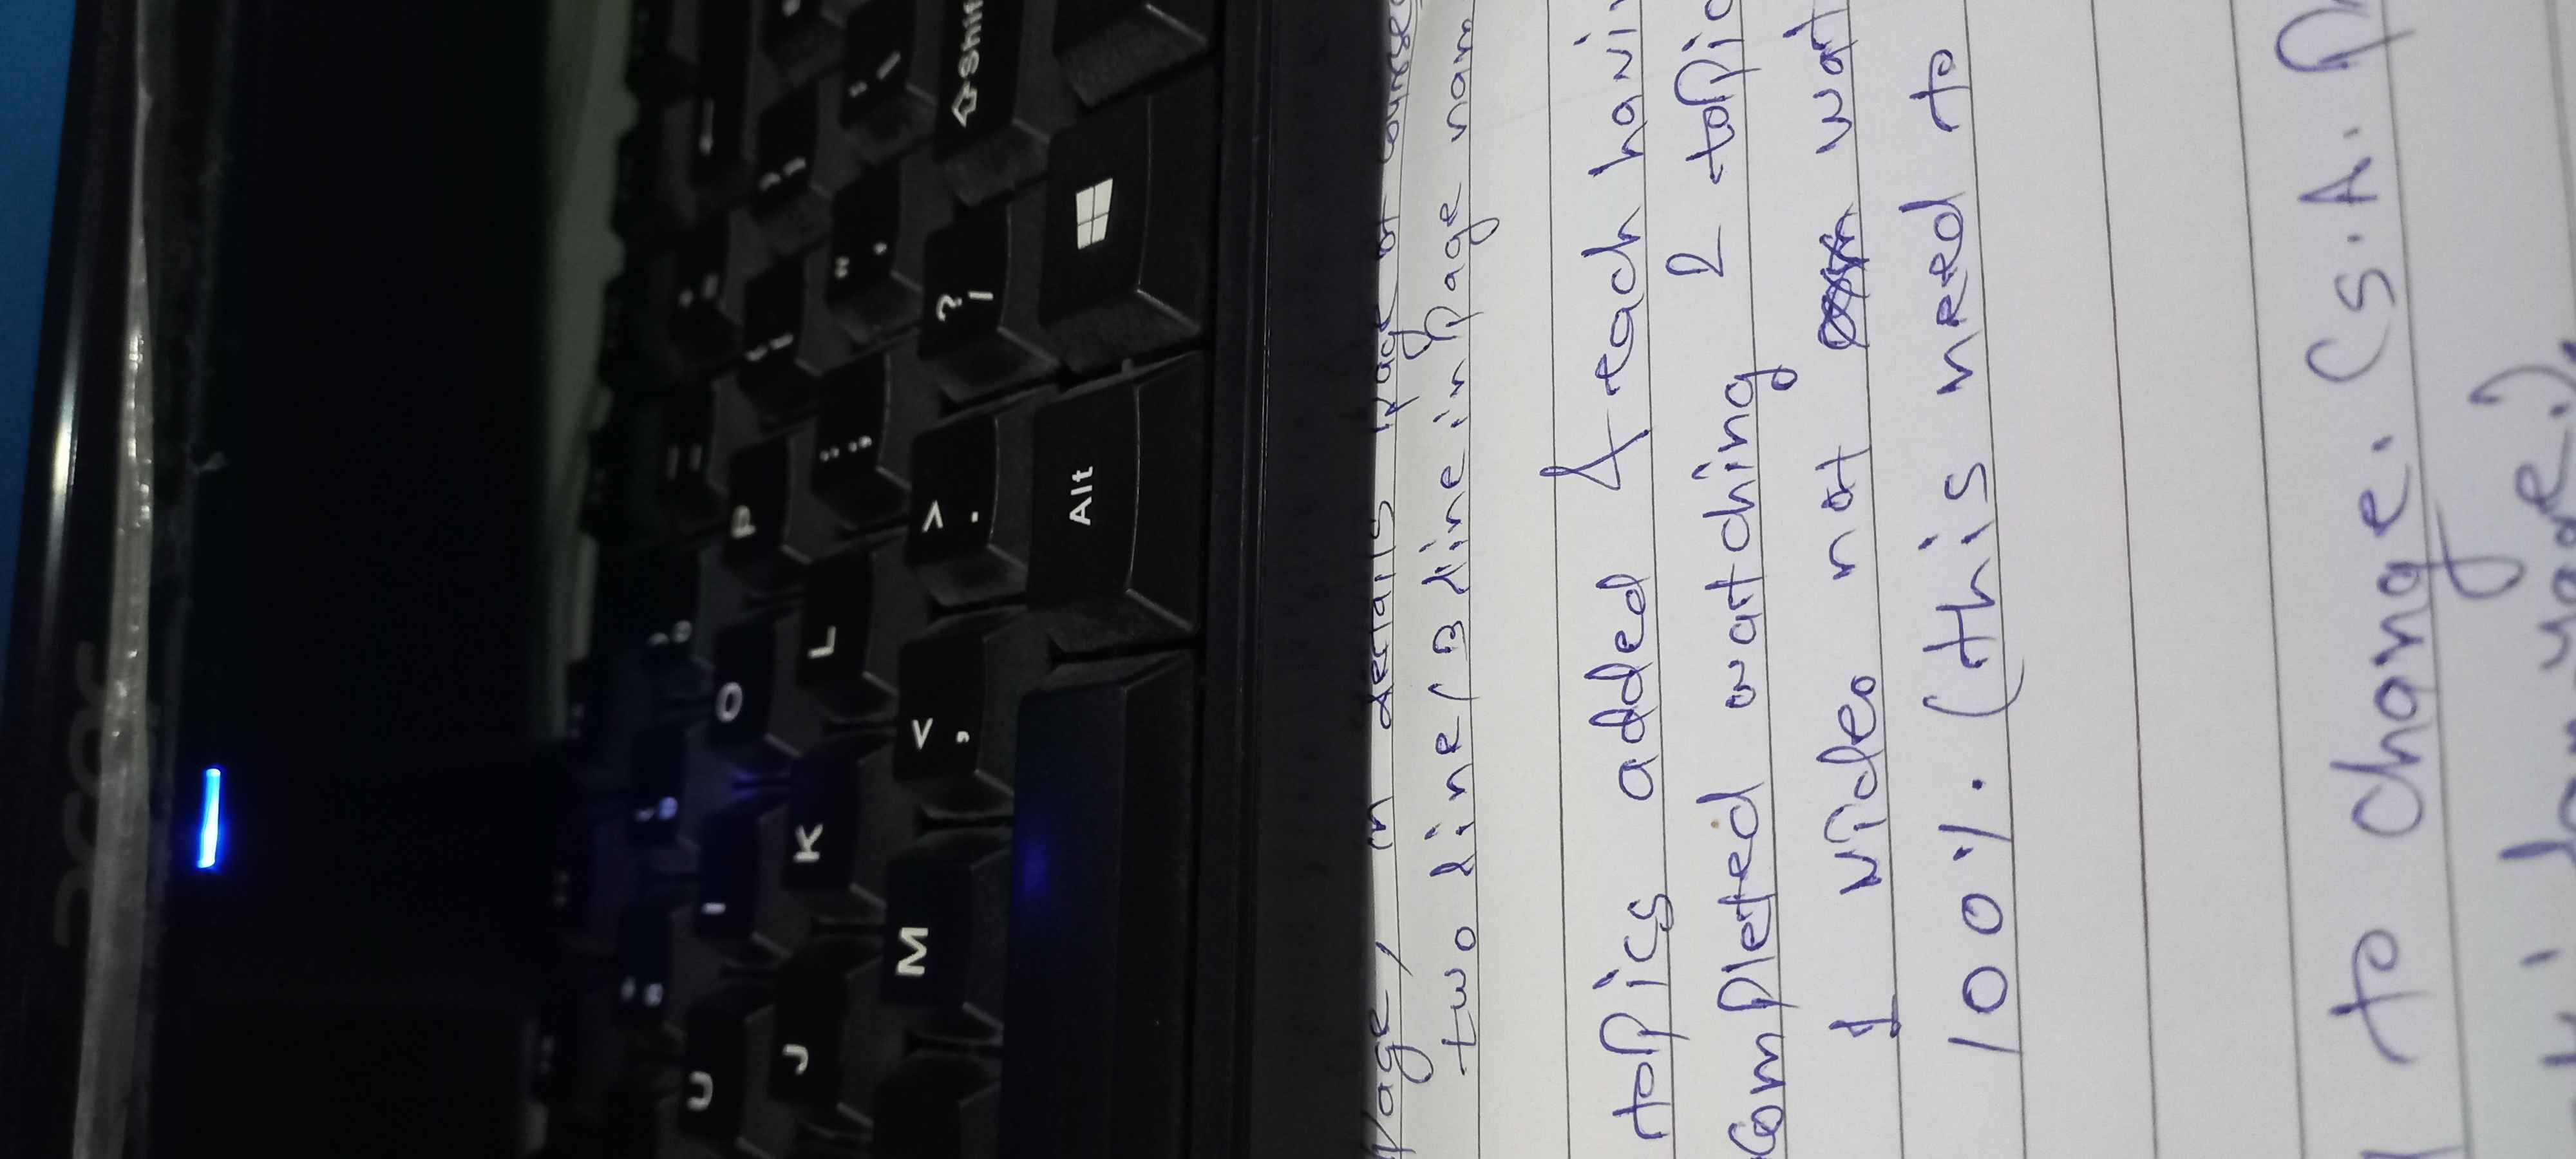 acer
U I O P
J K L : ; " '
M < , > . ? / Shif
Alt
Page, in details page of course
two line/3 line in Page nam
topics added & each havi
completed watching 2 topic
1 video not wat
100%. (this need to
to change. (S.A. P